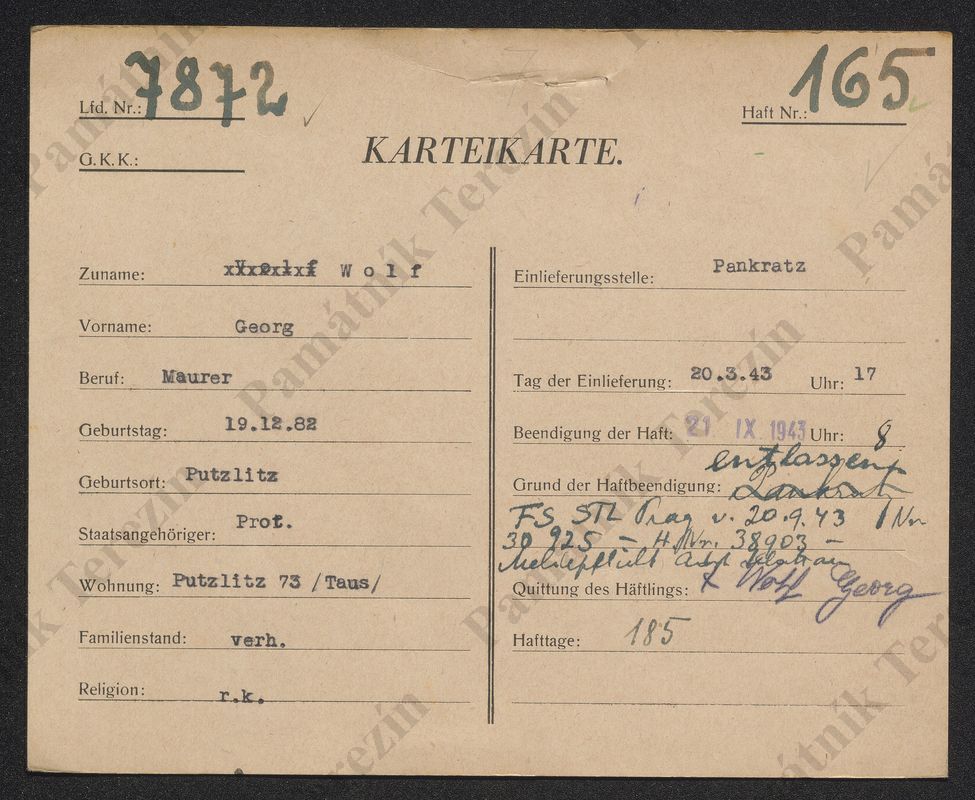 Lfd. Nr.: 7872
Haft Nr.: 165
G. K. K.:
KARTEIKARTE.
Zuname: Wolf
Vorname: Georg
Beruf: Maurer
Geburtstag: 19.12.82
Geburtsort: Putzlitz
Staatsangehöriger: Prot.
Wohnung: Putzlitz 73 /Taus/
Familienstand: verh.
Religion: r.k.
Einlieferungsstelle: Pankratz
Tag der Einlieferung: 20.3.43 Uhr: 17
Beendigung der Haft: 21 IX 1943 Uhr: 8
entlassen
Grund der Haftbeendigung: Pankratz
FS STL Prag v. 20.9.43 Nr.
30 925 – H.Nr. 38903 –
Quittung des Häftlings: x Wolf Georg
Hafttage: 185
Památník Terezín